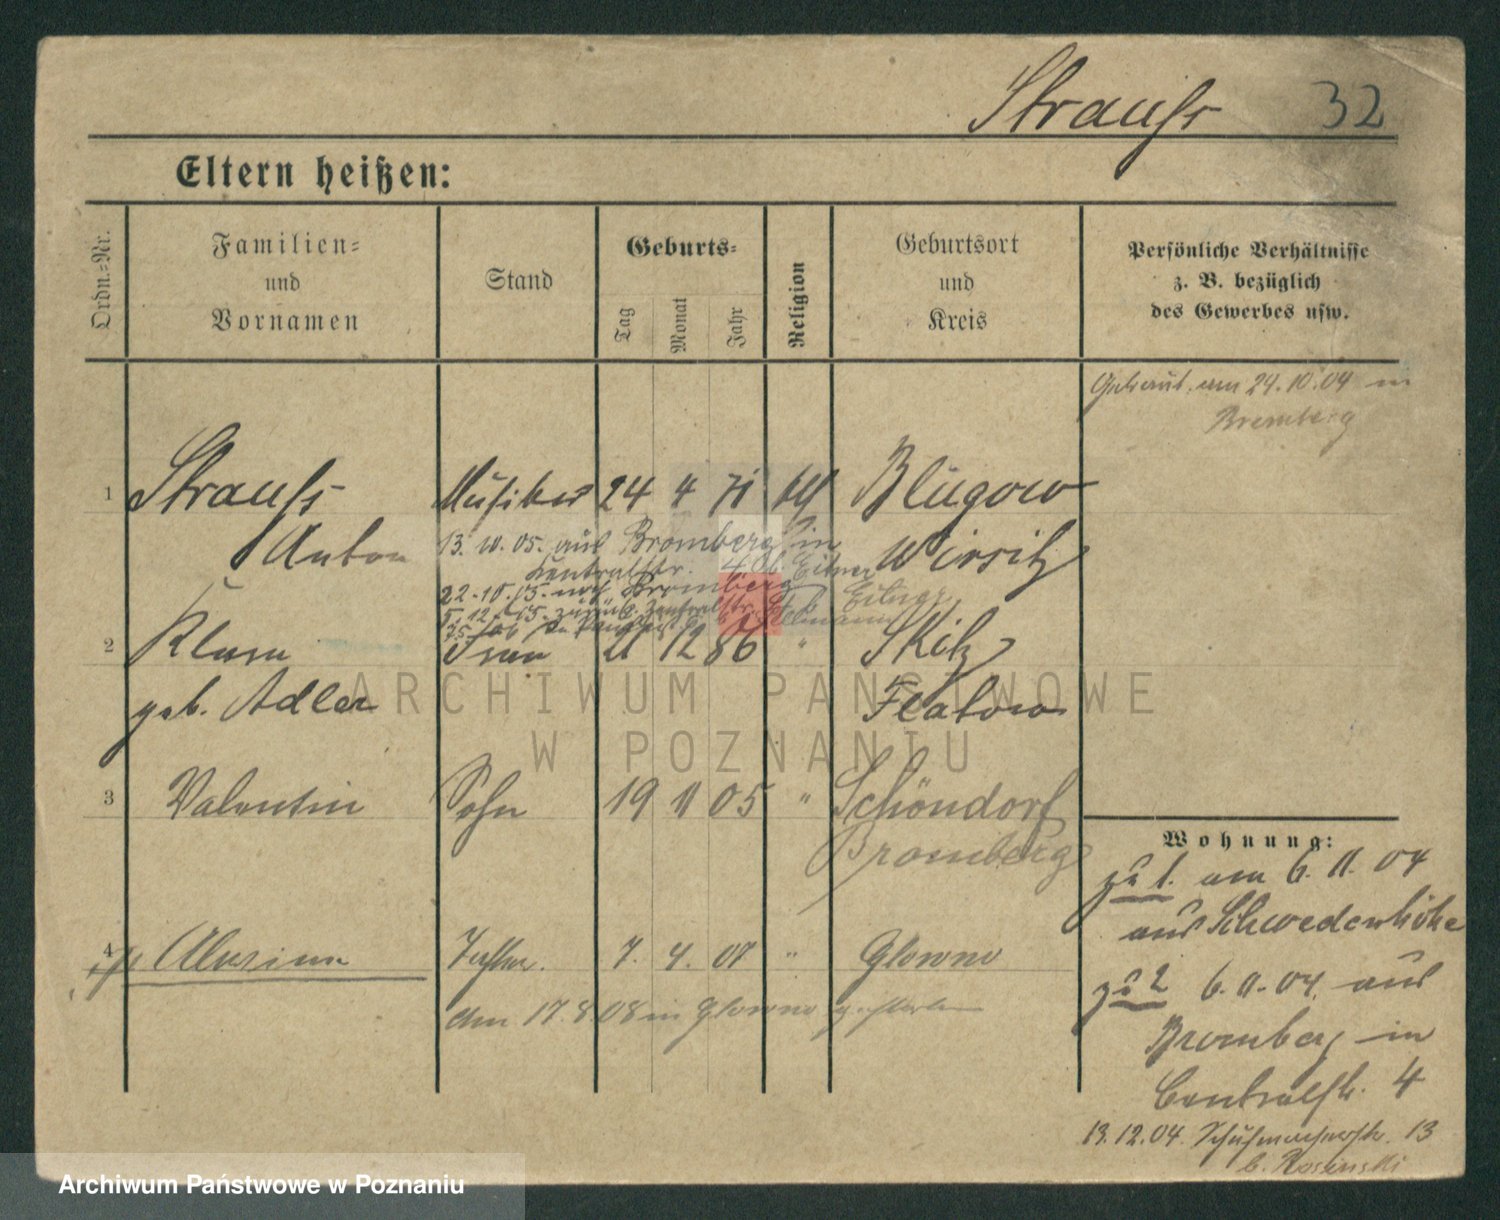 Strauß 32
Eltern heißen:
Ordn.-Nr.
Familien-
und
Vornamen
Stand
Geburts-
Tag
Monat
Jahr
Religion
Geburtsort
und
Kreis
Persönliche Verhältnisse
z. B. bezüglich
des Gewerbes usw.
Getraut am 24.10.04 in
Bromberg
1 Strauß Musiker 24 4 71 Blugow
Anton Wirsitz
13.10.05. aus Bromberg in
Zentralstr. 4 b. Eitner
22.10.05. nach Bromberg
5.12.05. zurück. Zentralstr.
2 Klara Frau 21 12 86 " Skitz
geb. Adler Flatow
3 Valentin Sohn 19 11 05 " Schöndorf
Bromberg
4 Tochter. 7. 4. 07 " Glowno
den 17.8.08 in Glowno gestorben
Wohnung:
zu 1. am 6.11.04
aus Schwedenhöhe
zu 2 6.11.04. aus
Bromberg in
Centralstr. 4
13.12.04. Schuhmacherstr. 13
b. Rosinski
ARCHIWUM PAŃSTWOWE
W POZNANIU
Archiwum Państwowe w Poznaniu